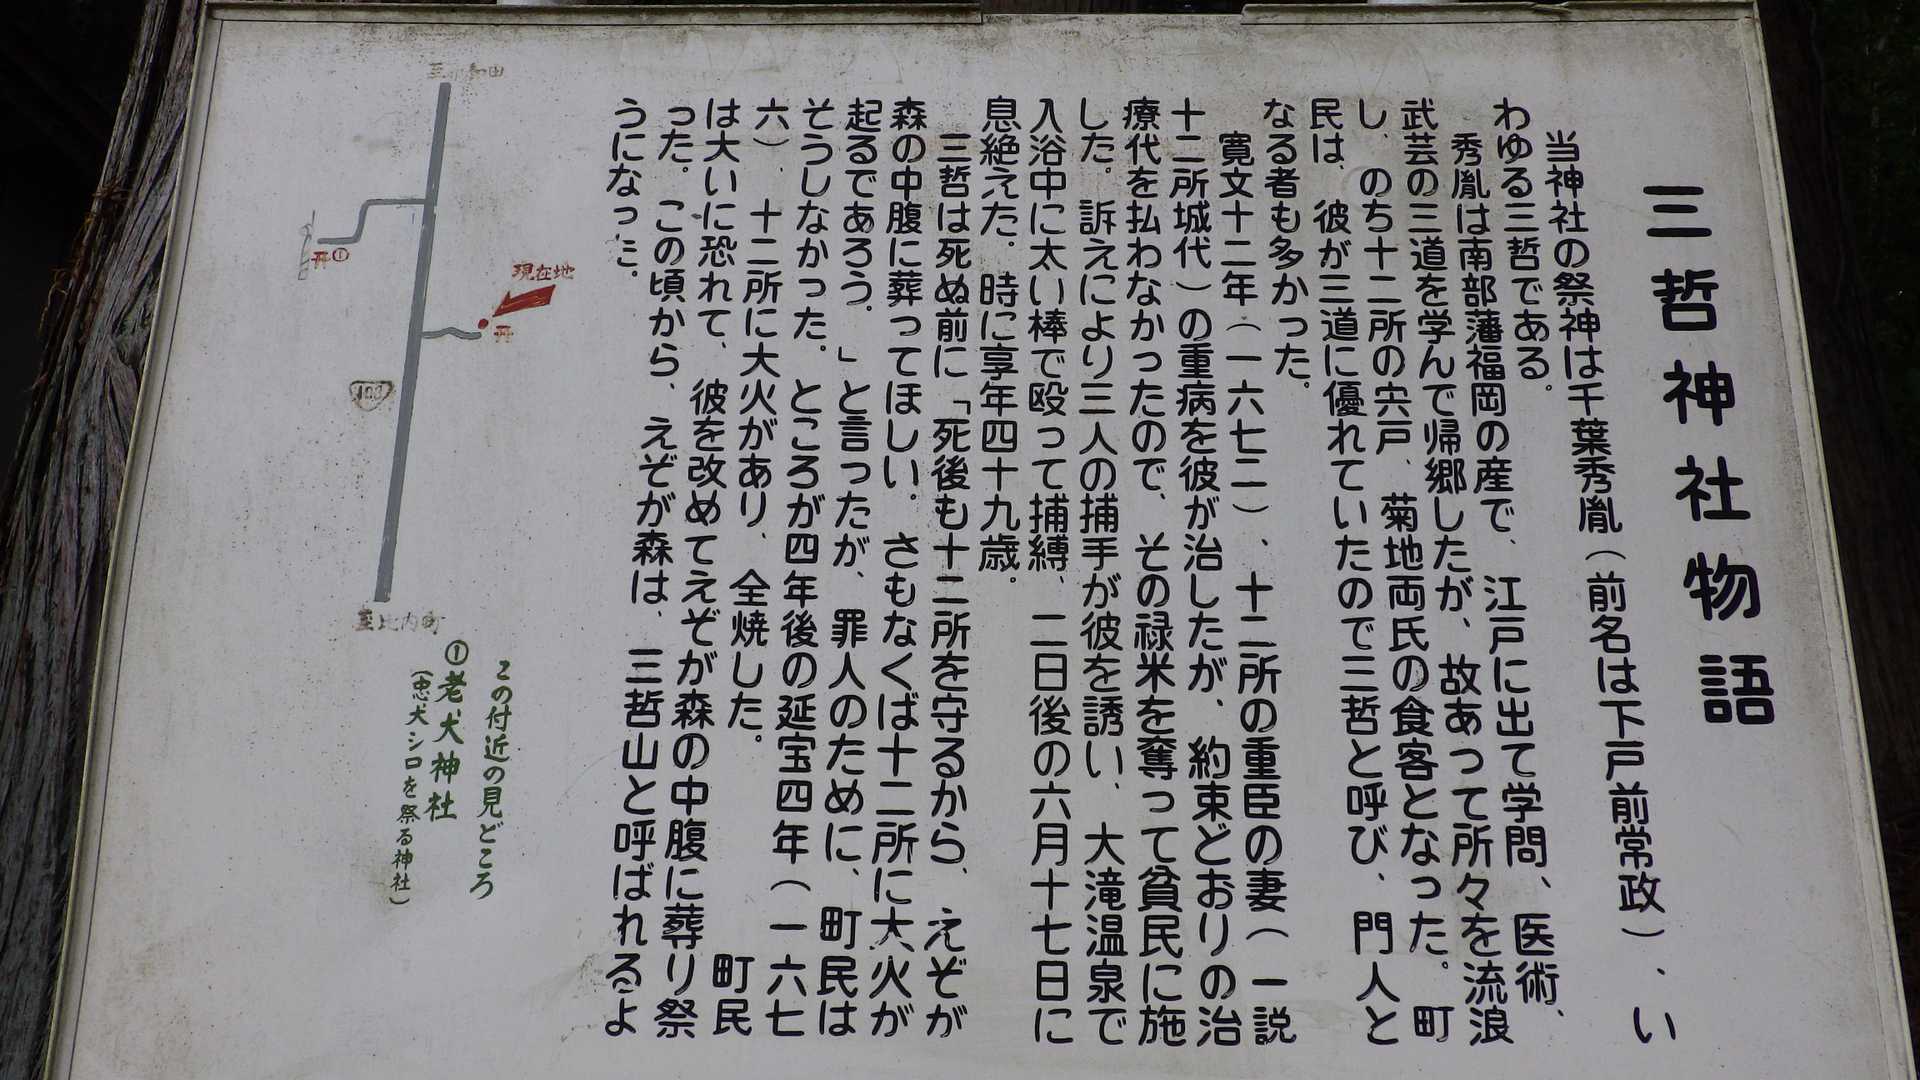 三哲神社物語
当神社の祭神は千葉秀胤（前名は下戸前常政）、い
わゆる三哲である。
秀胤は南部藩福岡の産で、江戸に出て学問、医術、
武芸の三道を学んで帰郷したが、故あって所々を流浪
し、のち十二所の宍戸、菊地両氏の食客となった。町
民は、彼が三道に優れていたので三哲と呼び、門人と
なる者も多かった。
寛文十二年（一六七二）、十二所の重臣の妻（一説
十二所城代）の重病を彼が治したが、約束どおりの治
療代を払わなかったので、その禄米を奪って貧民に施
した。訴えにより三人の捕手が彼を誘い、大滝温泉で
入浴中に太い棒で殴って捕縛、二日後の六月十七日に
息絶えた。時に享年四十九歳。
三哲は死ぬ前に「死後も十二所を守るから、えぞが
森の中腹に葬ってほしい。さもなくば十二所に大火が
起るであろう。」と言ったが、罪人のために、町民は
そうしなかった。ところが四年後の延宝四年（一六七
六）、十二所に大火があり、全焼した。町民
は大いに恐れて、彼を改めてえぞが森の中腹に葬り祭
った。この頃から、えぞが森は、三哲山と呼ばれるよ
うになった。
現在地
①
103
至比内町
この付近の見どころ
①老犬神社
（忠犬シロを祭る神社）